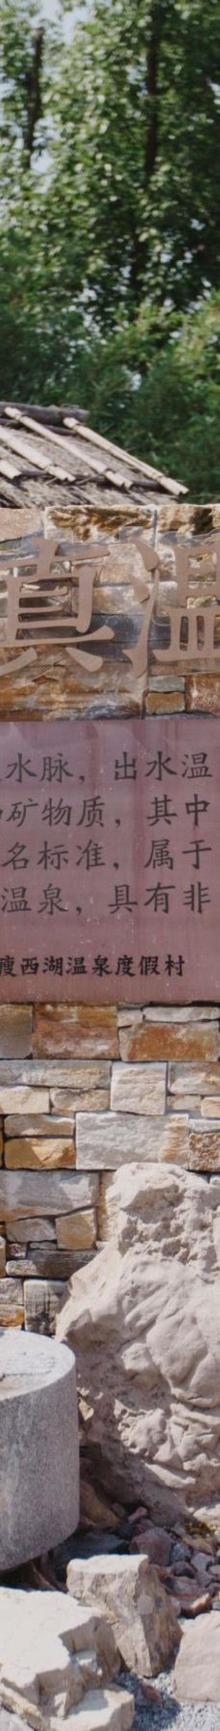 真温
水脉，出水温
矿物质，其中
名标准，属于
温泉，具有非
瘦西湖温泉度假村